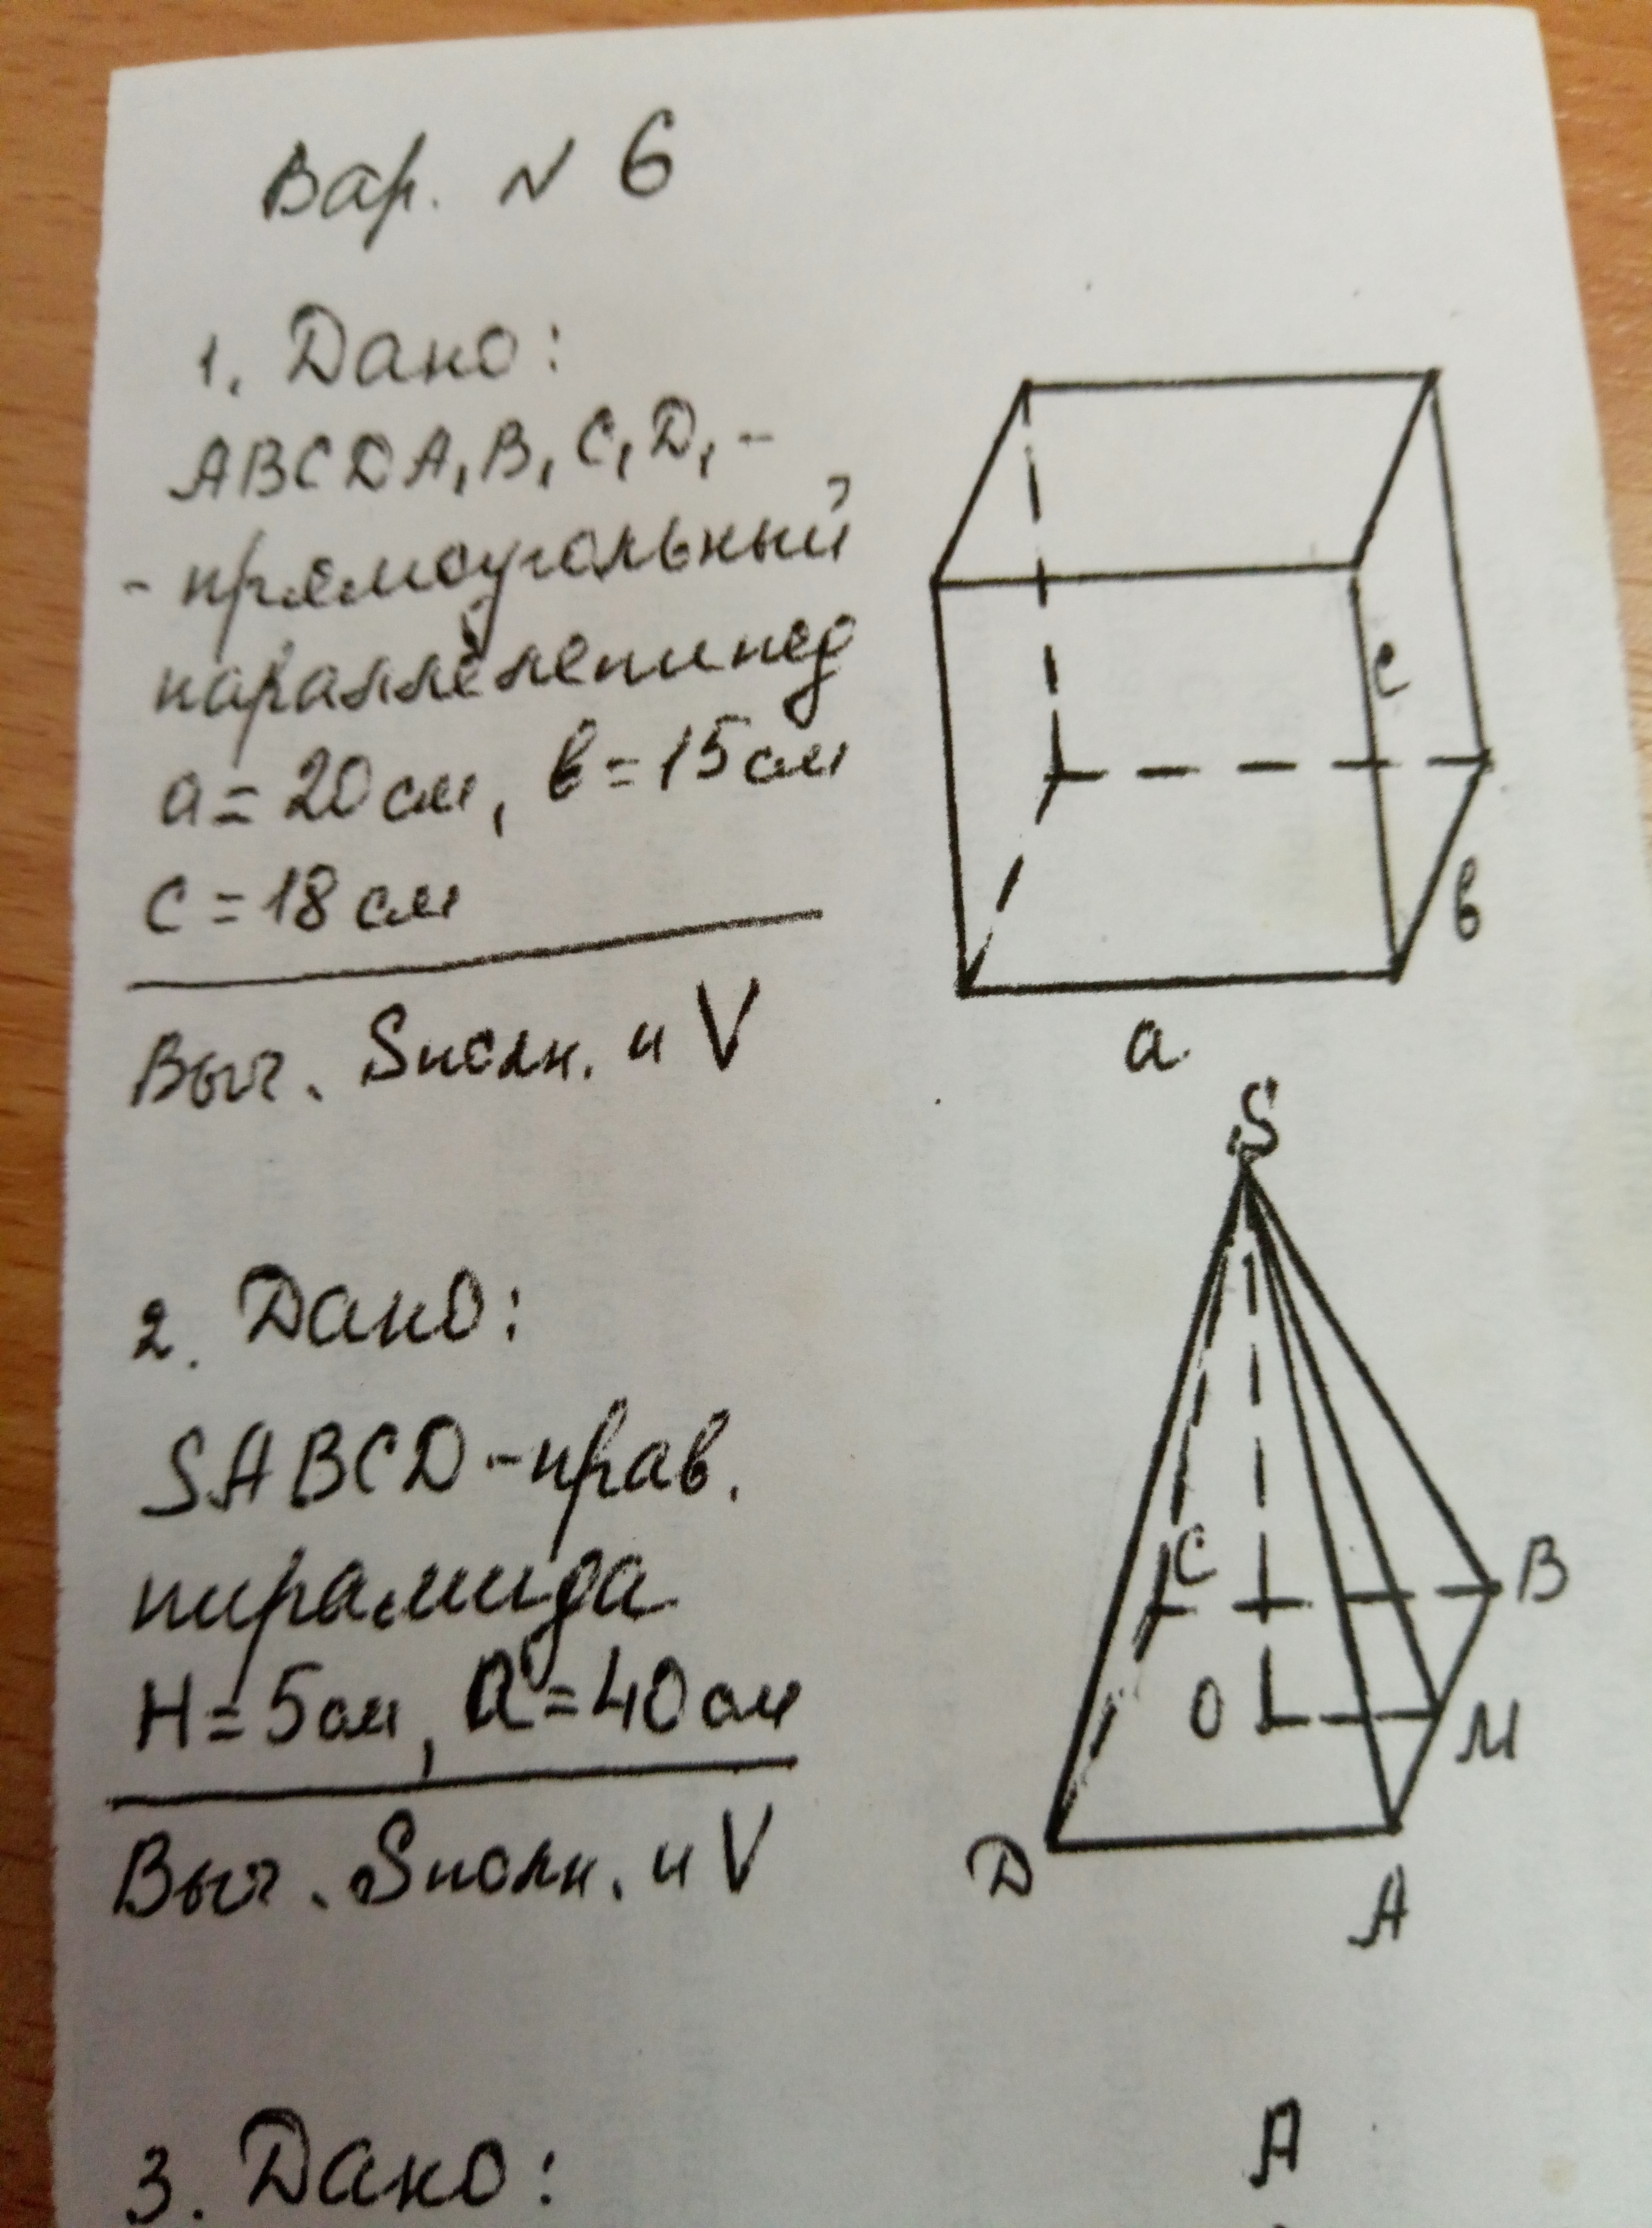 Вар. N 6
1. Дано:
ABCDA₁B₁C₁D₁ -
- прямоугольный
параллелепипед
a = 20 см, в = 15 см
c = 18 см
Выч. Sполн. и V
c
в
a
S
2. Дано:
SABCD - прав.
пирамида
H = 5 см, a = 40 см
Выч. Sполн. и V
C
B
O
M
D
A
3. Дано:
A